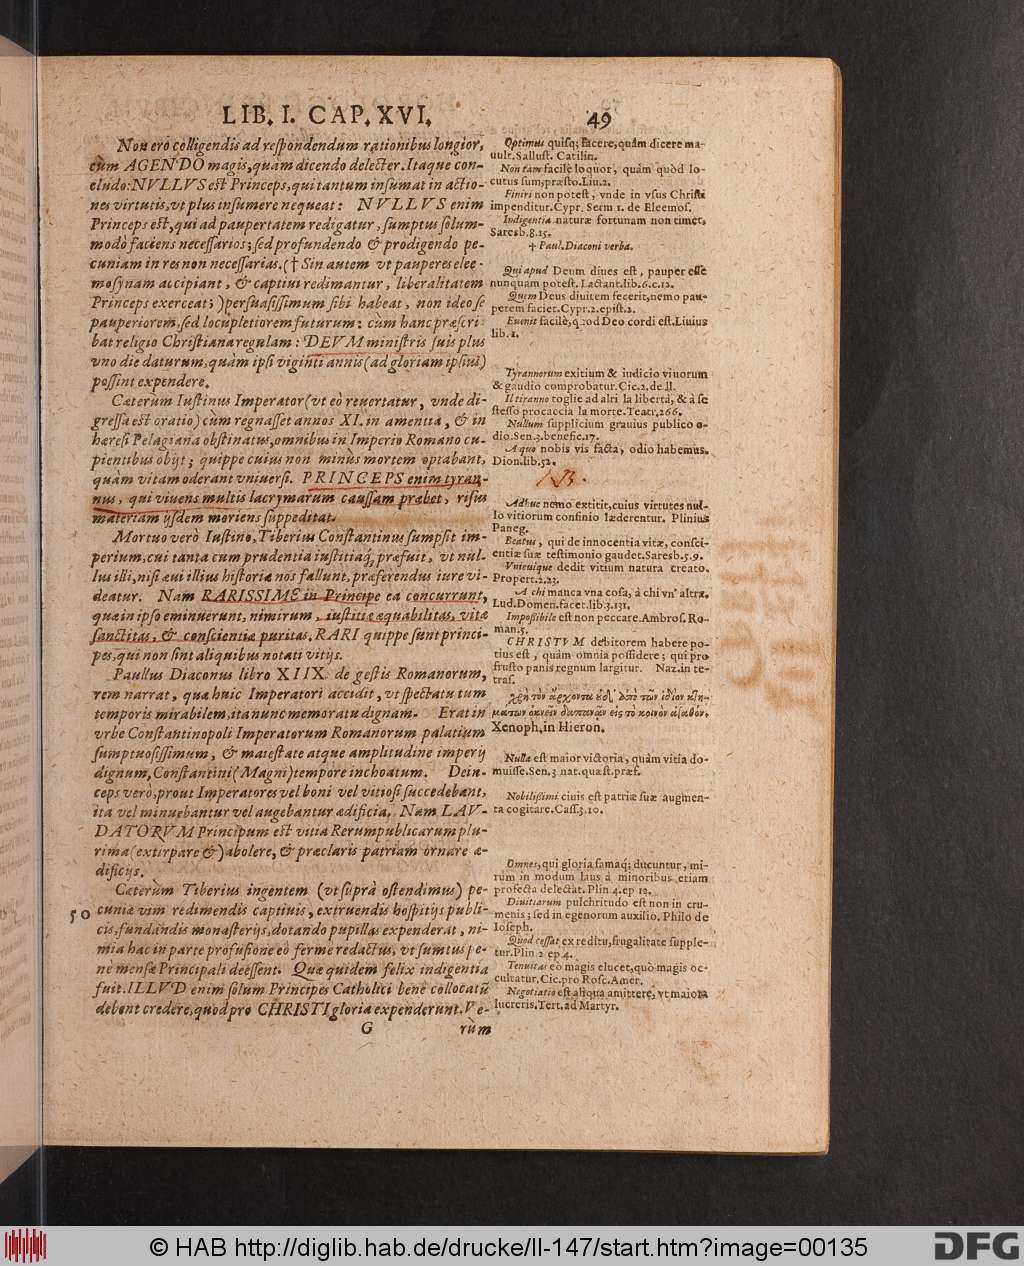 LIB. I. CAP. XVI. 49
Non ero colligendis ad respondendum rationibus longior,
cùm AGENDO magis, quàm dicendo delecter. Itaque con-
cludo: NVLLVS est Princeps, qui tantum insumat in actio-
nes virtutis, vt plus insumere nequeat: NVLLVS enim
Princeps est, qui ad paupertatem redigatur, sumptus sólum-
modò faciens necessarios; sed profundendo & prodigendo pe-
cuniam in res non necessarias. († Sin autem vt pauperes elee-
mosynam accipiant, & captiui redimantur, liberalitatem
Princeps exerceat;) persuasissimum sibi habeat, non ideo se
pauperiorem, sed locupletiorem futurum: cùm hanc præscri-
bat religio Christiana regulam: DEVM ministris suis plus
vno die daturum, quàm ipsi viginti annis (ad gloriam ipsius)
possint expendere.
Cæterum Iustinus Imperator (vt eò reuertatur, vnde di-
gressa est oratio) cùm regnasset annos XI. in amentia, & in
hæresi Pelagiana obstinatus, omnibus in Imperio Romano cu-
pientibus obijt; quippe cuius non minùs mortem optabant,
quàm vitam oderant vniuersi. PRINCEPS enim tyran-
nus, qui viuens multis lacrymarum caussam præbet, risus
materiam ijsdem moriens suppeditat.
Mortuo verò Iustino, Tiberius Constantinus sumpsit im-
perium, cui tanta cum prudentia iustitiaq; præfuit, vt nul-
lus illi, nisi æui illius historiæ nos fallunt, præferendus iure vi-
deatur. Nam RARISSIME in Principe ea concurrunt,
quæ in ipso eminuerunt, nimirum, iustitiæ æquabilitas, vitæ
sanctitas, & conscientiæ puritas. RARI quippe sunt princi-
pes, qui non sint aliquibus notati vitijs.
Paullus Diaconus libro XIIX. de gestis Romanorum,
rem narrat, quæ huic Imperatori accidit, vt spectatu tum
temporis mirabilem, ita nunc memoratu dignam. Erat in
vrbe Constantinopoli Imperatorum Romanorum palatium
sumptuosissimum, & maiestate atque amplitudine imperij
dignum, Constantini (Magni) tempore inchoatum. Dein-
ceps verò, prout Imperatores vel boni vel vitiosi succedebant,
ita vel minuebantur vel augebantur ædificia. Nam LAV-
DATORVM Principum est vitia Rerumpublicarum plu-
rima (extirpare &) abolere, & præclaris patriam ornare æ-
dificijs.
Cæterùm Tiberius ingentem (vt suprà ostendimus) pe-
50 cuniæ vim redimendis captiuis, extruendis hospitijs publi-
cis, fundandis monasterijs, dotando pupillas expenderat, ni-
mia hac in parte profusione eò ferme redactus, vt sumtus pe-
ne mensæ Principali deessent. Quæ quidem felix indigentia
fuit. ILLVD enim sólum Principes Catholici benè collocatũ
debent credere, quod pro CHRISTI gloria expenderunt. Ve-
G rùm
Optimus quisq; facere, quàm dicere ma-
uult. Sallust. Catilin.
Non tam facilè loquor, quàm quòd lo-
cutus sum, præsto. Liu. 2.
Finiri non potest, vnde in vsus Christi
impenditur. Cypr. Serm 1. de Eleemos.
Indigentia naturæ fortunam non timet.
Saresb. 8. 15.
† Paul. Diaconi verba.
Qui apud Deum diues est, pauper esse
nunquam potest. Lactant. lib. 6. c. 12.
Quem Deus diuitem fecerit, nemo pau-
perem faciet. Cypr. 2. epist. 2.
Euenit facilè, quod Deo cordi est. Liuius
lib. 1.
Tyrannorum exitium & iudicio viuorum
& gaudio comprobatur. Cic. 2. de II.
Il tiranno toglie ad altri la libertà, & à se
stesso procaccia la morte. Teatr. 266.
Nullum supplicium grauius publico o-
dio. Sen. 3. benefic. 17.
A quo nobis vis facta, odio habemus.
Dion. lib. 52.
NB.
Adhuc nemo extitit, cuius virtutes nul-
lo vitiorum confinio læderentur. Plinius
Paneg.
Beatus, qui de innocentia vitæ, consci-
entiæ suæ testimonio gaudet. Saresb. 5. 9.
Vnicuique dedit vitium natura creato.
Propert. 2. 23.
A chi manca vna cosa, à chi vn' altra.
Lud. Domen. facet. lib. 3. 131.
Impossibile est non peccare. Ambros. Ro-
man. 5.
CHRISTVM debitorem habere po-
tius est, quàm omnia possidere; qui pro
frusto panis regnum largitur. Naz. in te-
tras.
χρὴ τὸν ἄρχοντα ἀπὸ τῶν ἰδίων κτη-
μάτων ὀκνεῖν δαπανᾶν εἰς τὸ κοινὸν ἀγαθόν.
Xenoph. in Hieron.
Nulla est maior victoria, quàm vitia do-
muisse. Sen. 3 nat. quæst. præf.
Nobilissimi ciuis est patriæ suæ augmen-
ta cogitare. Cass. 3. 10.
Omnes, qui gloria famaq; ducuntur, mi-
rùm in modum laus à minoribus etiam
profecta delectat. Plin 4. ep 12.
Diuitiarum pulchritudo est non in cru-
menis; sed in egenorum auxilio. Philo de
Ioseph.
Quod cessat ex reditu, frugalitate supple-
tur. Plin. 2 ep 4.
Tenuitas eò magis elucet, quò magis oc-
cultatur. Cic. pro Rosc. Amer.
Negotiatio est aliqua amittere, vt maiora
lucreris. Tert. ad Martyr.
© HAB http://diglib.hab.de/drucke/ll-147/start.htm?image=00135
DFG